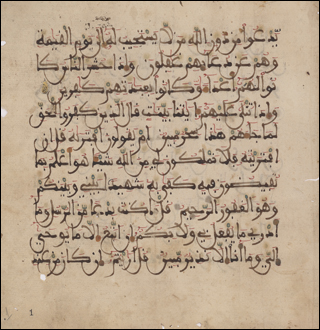 يدعوا من دون الله من لا يستجيب له إلى يوم القيمة
وهم عن دعائهم غفلون وإذا حشر الناس كا
نوا لهم أعداء وكانوا بعبادتهم كفرين
وإذا تتلى عليهم ءايتنا بينت قال الذين كفروا للحق
لما جاءهم هذا سحر مبين أم يقولون افتريه قل إن
افتريته فلا تملكون لي من الله شيئا هو أعلم بما
تفيضون فيه كفى به شهيدا بيني وبينكم
وهو الغفور الرحيم قل ما كنت بدعا من الرسل وما
أدري ما يفعل بي ولا بكم إن أتبع إلا ما يوحى
إلي وما أنا إلا نذير مبين قل أرأيتم إن كان من عند
1